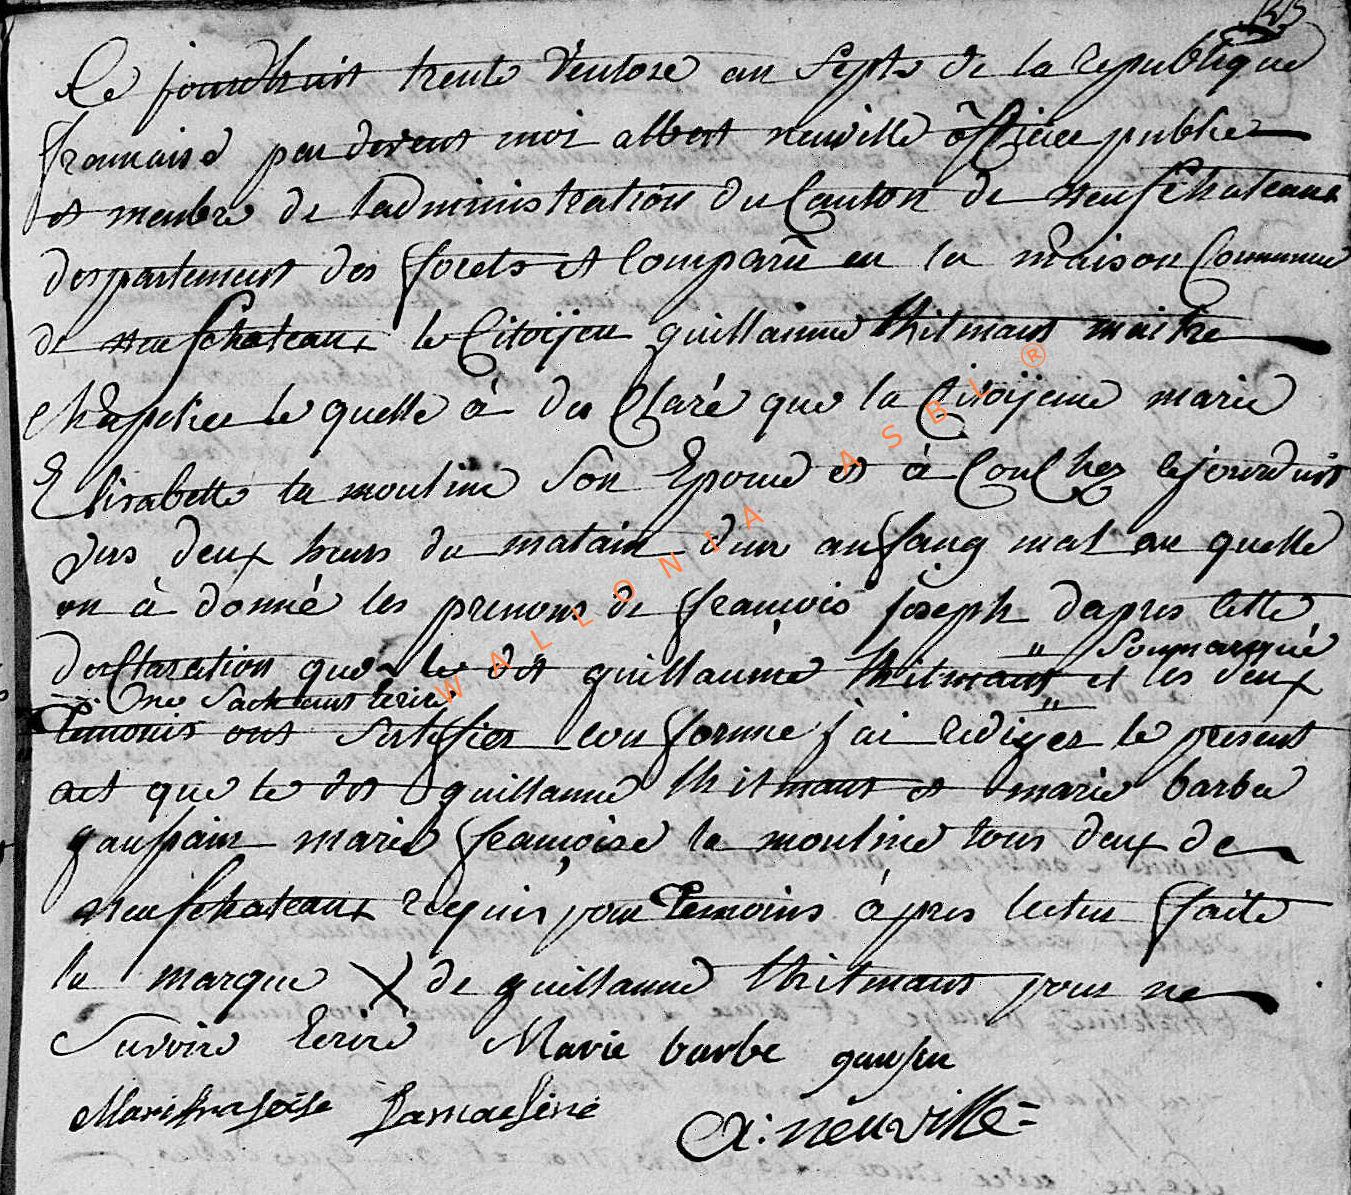 Ce jourdhuit trente Ventose an Septe de la republique
francaise par devent moi albert neuville officiee publice
et menbre de ladministration du Canton de neufchateaux
despartement des forets et Comparu en la maison Commune
de neufchateaux le Citoijen guillaume thitmant maitre
chapelier le quelle à des Claré que la Citoijene marie
Elisabette la mouline son Epouse et à Couchez lejourduit
vers deux heurs du matain d'un anfang mal au quelle
on à donné les prenoms de francois joseph dapres cette
desclaration que le dit guillaume thitmant " Soumarqué et les deux
temonis one sachant Ecrire ont sertifier conforme j'ai rediger le present
act que le dit guillaume thitmant et marie barbe
gaussain marie francoise la mouline tous deux de
neufchateaux requis pour temoins àpres lectur faite
la marque X de guillaume thitmant pour ne
savoire Ecrire Marie barbe gausen
Marie fransoise Lamouline
A: neuville =
WALLONIA ASBL ®